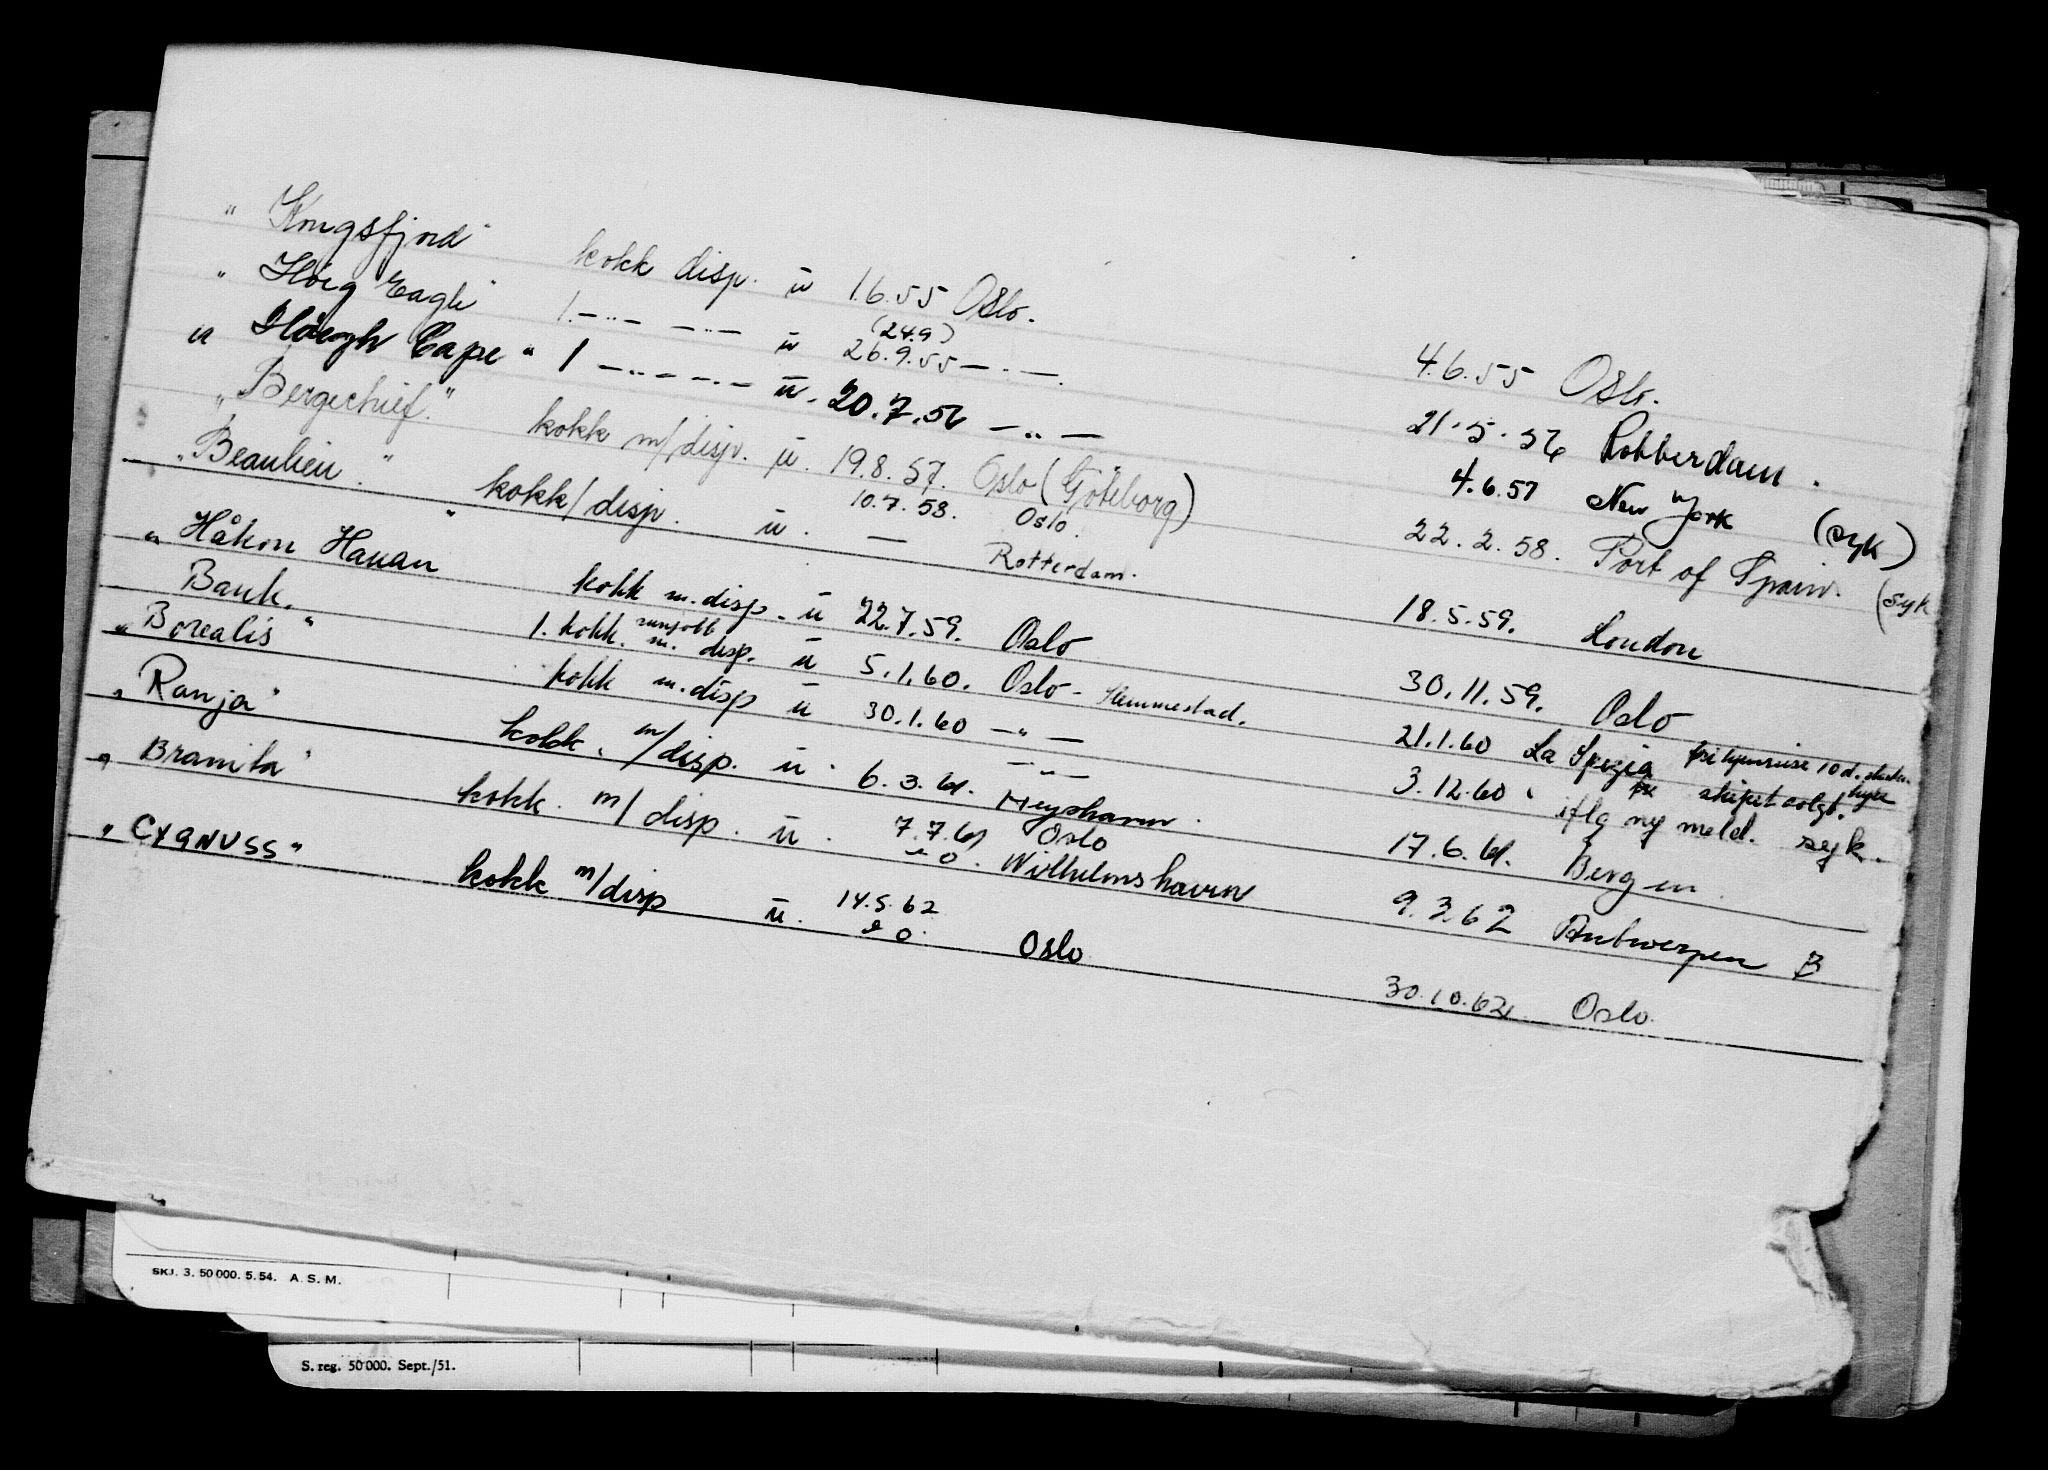 " Kongsfjord " kokk disp. ü 1.6.55 Oslo. 4.6.55 Oslo.
" Höig Eagle " 1. -..- -..- ü (24.9) 26.9.55 -..- 21.5.56 Rotterdam.
" Höegh Cape " 1 -..- -..- ü. 20.7.56 -..- 4.6.57 New York (syk)
" Bergechief." kokk m/disp. ü. 19.8.57. Oslo (Göteborg) 22.2.58. Port of Spain. (syk
" Beaulieu. " kokk/disp. ü. 10.7.58. Oslo. — Rotterdam. 18.5.59. London
" Håkon Hauan " kokk m. disp. ü 22.7.59. Oslo 30.11.59. Oslo
Bauk. " 1. kokk. m. disp. ü 5.1.60. Oslo - Slemmestad. 21.1.60 La Spezia 10 d. hyre skipet solgt.
" Borealis kokk m. disp ü 30.1.60 -"- 3.12.60 iflg ny meld. syk.
" Ranja " kokk. m/disp. ü. 6.3.61. -"- 17.6.61. Bergen.
" Bramila " kokk. m/disp. ü. 7.7.61 Oslo e O. Wilhelmshavn 9.3.62 Antwerpen B
" CYGNUSS " kokk m/disp ü. 14.5.62 e O. Oslo 30.10.62 Oslo.
SKJ. 3. 50 000. 5. 54. A. S. M.
S. reg. 50 000. Sept./51.